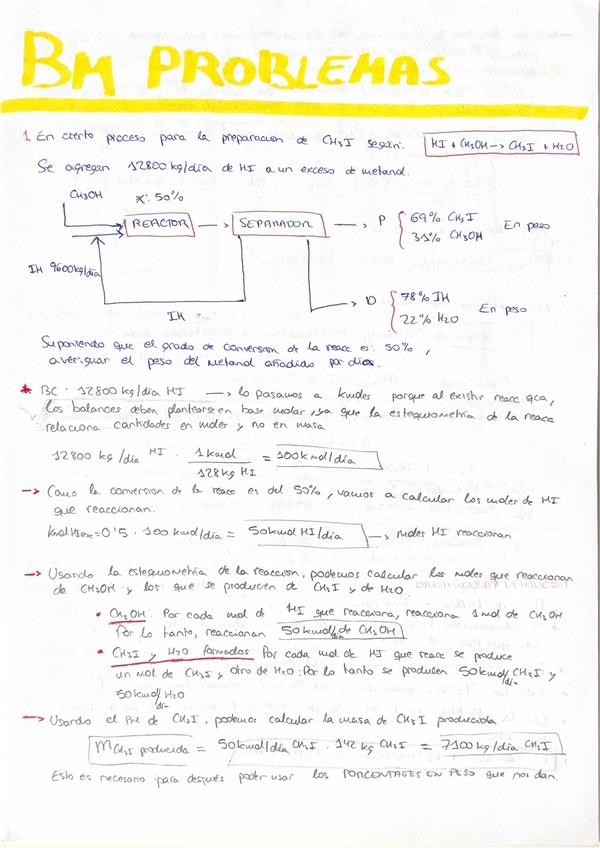 BM PROBLEMAS
1. En cierto proceso para la preparación de CH3I según: HI + CH3OH → CH3I + H2O
Se agregan 12800 kg/día de HI a un exceso de metanol.
CH3OH x: 50%
REACTOR → SEPARADOR → P { 69% CH3I En peso
31% CH3OH
IH 9600kg/día
IH
D { 78% IH En peso
22% H2O
Suponiendo que el grado de conversión de la reacc es: 50%,
averiguar el peso del metanol añadido por días.
* BC: 12800 kg/día HI → lo pasamos a kmoles porque al existir reacc qca,
los balances deben plantearse en base molar, ya que la estequiometría de la reacc
relaciona cantidades en moles y no en masa
12800 kg/día HI · 1 kmol / 128 kg HI = 100 kmol/día
→ Como la conversión de la reacc es del 50%, vamos a calcular los moles de HI
que reaccionan.
= 0'5 · 100 kmol/día = 50 kmol HI/día → moles HI reaccionan
→ Usando la estequiometría de la reacción, podemos calcular los moles que reaccionan
de CH3OH y los que se producen de CH3I y de H2O
• CH3OH. Por cada mol de HI que reacciona, reacciona 1 mol de CH3OH
Por lo tanto, reaccionan 50 kmol/día de CH3OH
• CH3I y H2O formados Por cada mol de HI que reacc se produce
un mol de CH3I y otro de H2O. Por lo tanto se producen 50 kmol/día CH3I y
50 kmol/día H2O
→ Usando el PM de CH3I, podemos calcular la masa de CH3I producida
m CH3I producida = 50 kmol/día CH3I · 142 kg CH3I = 7100 kg/día CH3I
Esto es necesario para después poder usar los PORCENTAGES EN PESO que nos dan.